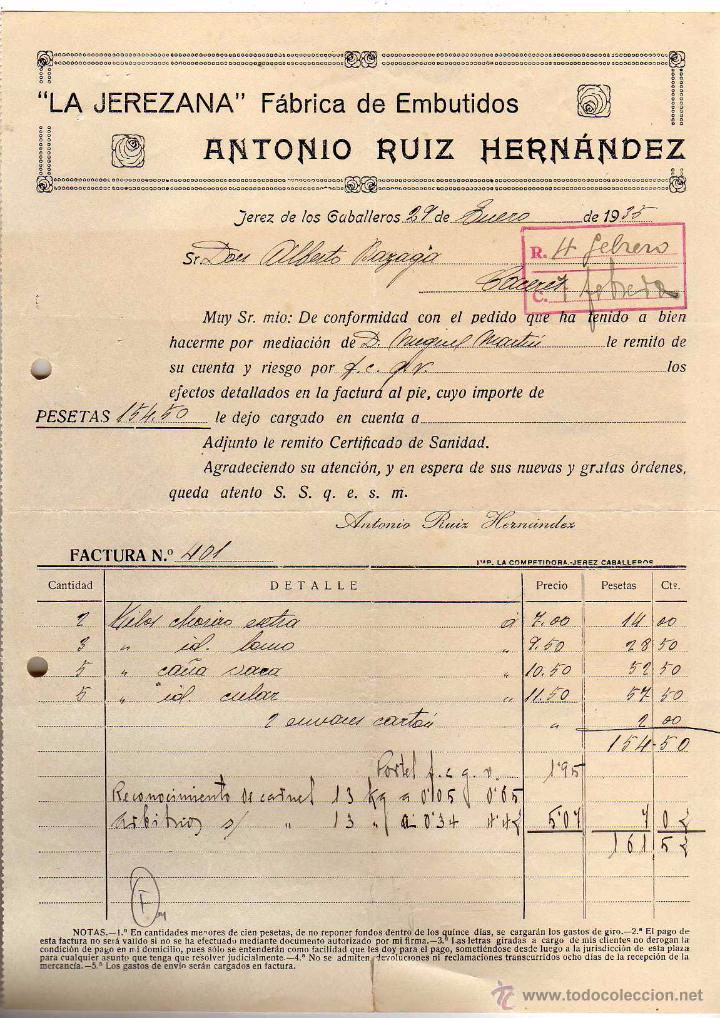 "LA JEREZANA" Fábrica de Embutidos
ANTONIO RUIZ HERNÁNDEZ
Jerez de los Caballeros 29 de Enero de 1935
Sr. Don Alberto Bazaga
R. 4 febrero
Caceres
C. 7 febrero
Muy Sr. mio: De conformidad con el pedido que ha tenido a bien
hacerme por mediación de D. Miguel Martin le remito de
su cuenta y riesgo por f. c. g. v. los
efectos detallados en la factura al pie, cuyo importe de
PESETAS 154.50 le dejo cargado en cuenta a
Adjunto le remito Certificado de Sanidad.
Agradeciendo su atención, y en espera de sus nuevas y gratas órdenes,
queda atento S. S. q. e. s. m.
Antonio Ruiz Hernández
FACTURA N.º 401
IMP. LA COMPETIDORA.-JEREZ CABALLEROS
Cantidad DETALLE Precio Pesetas Cts.
2 Kilos chorizo extra a 7.00 14 00
3 " id. lomo " 9.50 28 50
5 " caña vaca " 10.50 52 50
5 " id. cular " 11.50 57 50
2 envases cartón " 2 00
154.50
Portes f. c. g. v. 1'95
Reconocimiento de carnes 13 Kg a 0'05 0'65
Arbitrios s/ " 13 " a 0'34 4'42 5'07 7 02
161,52
F
NOTAS.—1.ª En cantidades menores de cien pesetas, de no reponer fondos dentro de los quince días, se cargarán los gastos de giro.—2.ª El pago de
esta factura no será válido si no se ha efectuado mediante documento autorizado por mi firma.—3.ª Las letras giradas a cargo de mis clientes no derogan la
condición de pago en mi domicilio, pues sólo se entenderán como facilidad que les doy para el pago, sometiéndose desde luego a la jurisdicción de esta plaza
para cualquier asunto que tenga que resolver judicialmente.—4.ª No se admiten devoluciones ni reclamaciones transcurridos ocho días de la recepción de la
mercancía.—5.ª Los gastos de envío serán cargados en factura.
www.todocoleccion.net